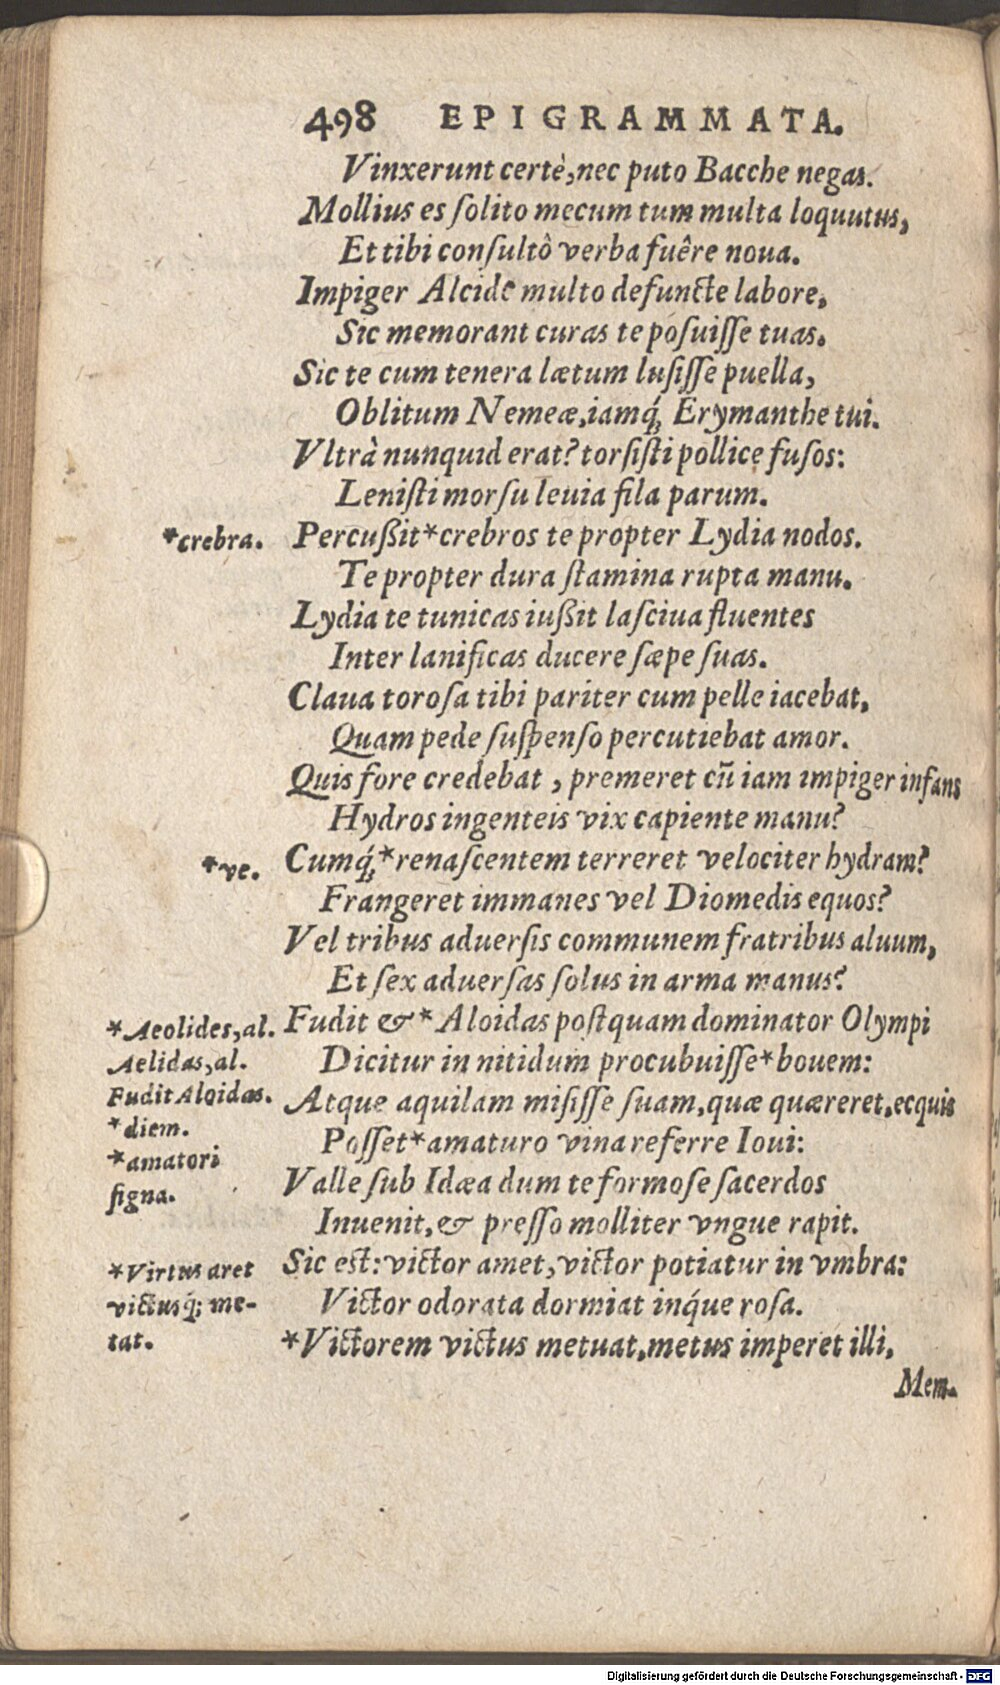 498 EPIGRAMMATA.
Vinxerunt certè, nec puto Bacche negas.
Mollius es ſolito mecum tum multa loquutus,
Et tibi conſultô verba fuêre noua.
Impiger Alcide multo defuncte labore,
Sic memorant curas te poſuiſſe tuas.
Sic te cum tenera lætum luſiſſe puella,
Oblitum Nemeæ, iamq́; Erymanthe tui.
Vltrà nunquid erat? torſiſti pollice fuſos:
Leniſti morſu leuia fila parum.
*crebra. Percußit*crebros te propter Lydia nodos.
Te propter dura ſtamina rupta manu.
Lydia te tunicas iußit laſciua fluentes
Inter lanificas ducere ſæpe ſuas.
Claua toroſa tibi pariter cum pelle iacebat,
Quam pede ſuſpenſo percutiebat amor.
Quis fore credebat, premeret cũ iam impiger infans
Hydros ingenteis vix capiente manu?
*ve. Cumq́;*renaſcentem terreret velociter hydram?
Frangeret immanes vel Diomedis equos?
Vel tribus aduerſis communem fratribus aluum,
Et ſex aduerſas ſolus in arma manus?
*Aeolides, al. Fudit &* Aloidas poſtquam dominator Olympi
Aelidas, al. Dicitur in nitidum procubuiſſe*bouem:
Fudit Aloidas. Atque aquilam miſiſſe ſuam, quæ quæreret, ecquis
*diem. Poſſet*amaturo vina referre Ioui:
*amatori
ſigna. Valle ſub Idæa dum te formoſe ſacerdos
Inuenit, & preſſo molliter vngue rapit.
*Virtus aret Sic est: victor amet, victor potiatur in vmbra:
victusq́; me- Victor odorata dormiat inq́ue roſa.
tat. *Victorem victus metuat, metus imperet illi,
Mem.
Digitalisierung gefördert durch die Deutsche Forschungsgemeinschaft - DFG